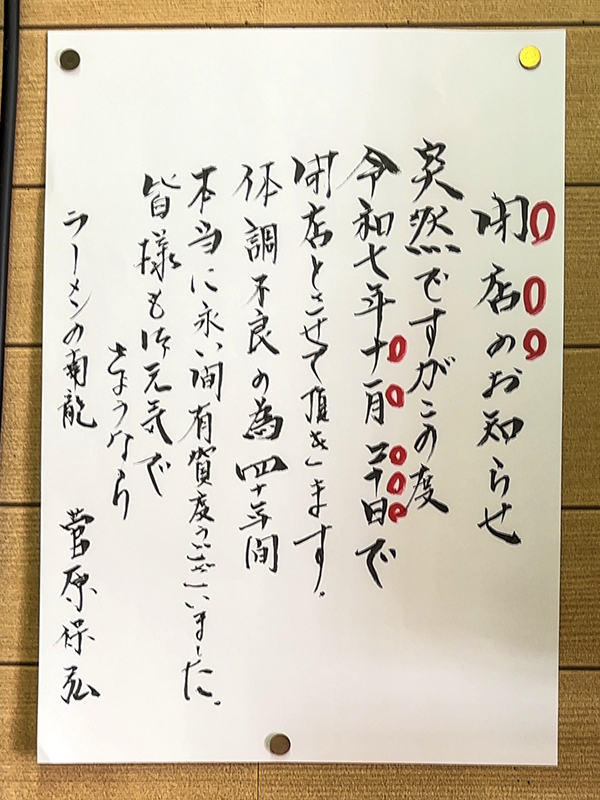 閉店のお知らせ
突然ですがこの度
令和七年十一月三十日で
閉店とさせて頂きます。
体調不良の為四十年間
本当に永い間有賀度うございました。
皆様も御元気で
さようなら
ラーメンの南龍
菅原保弘